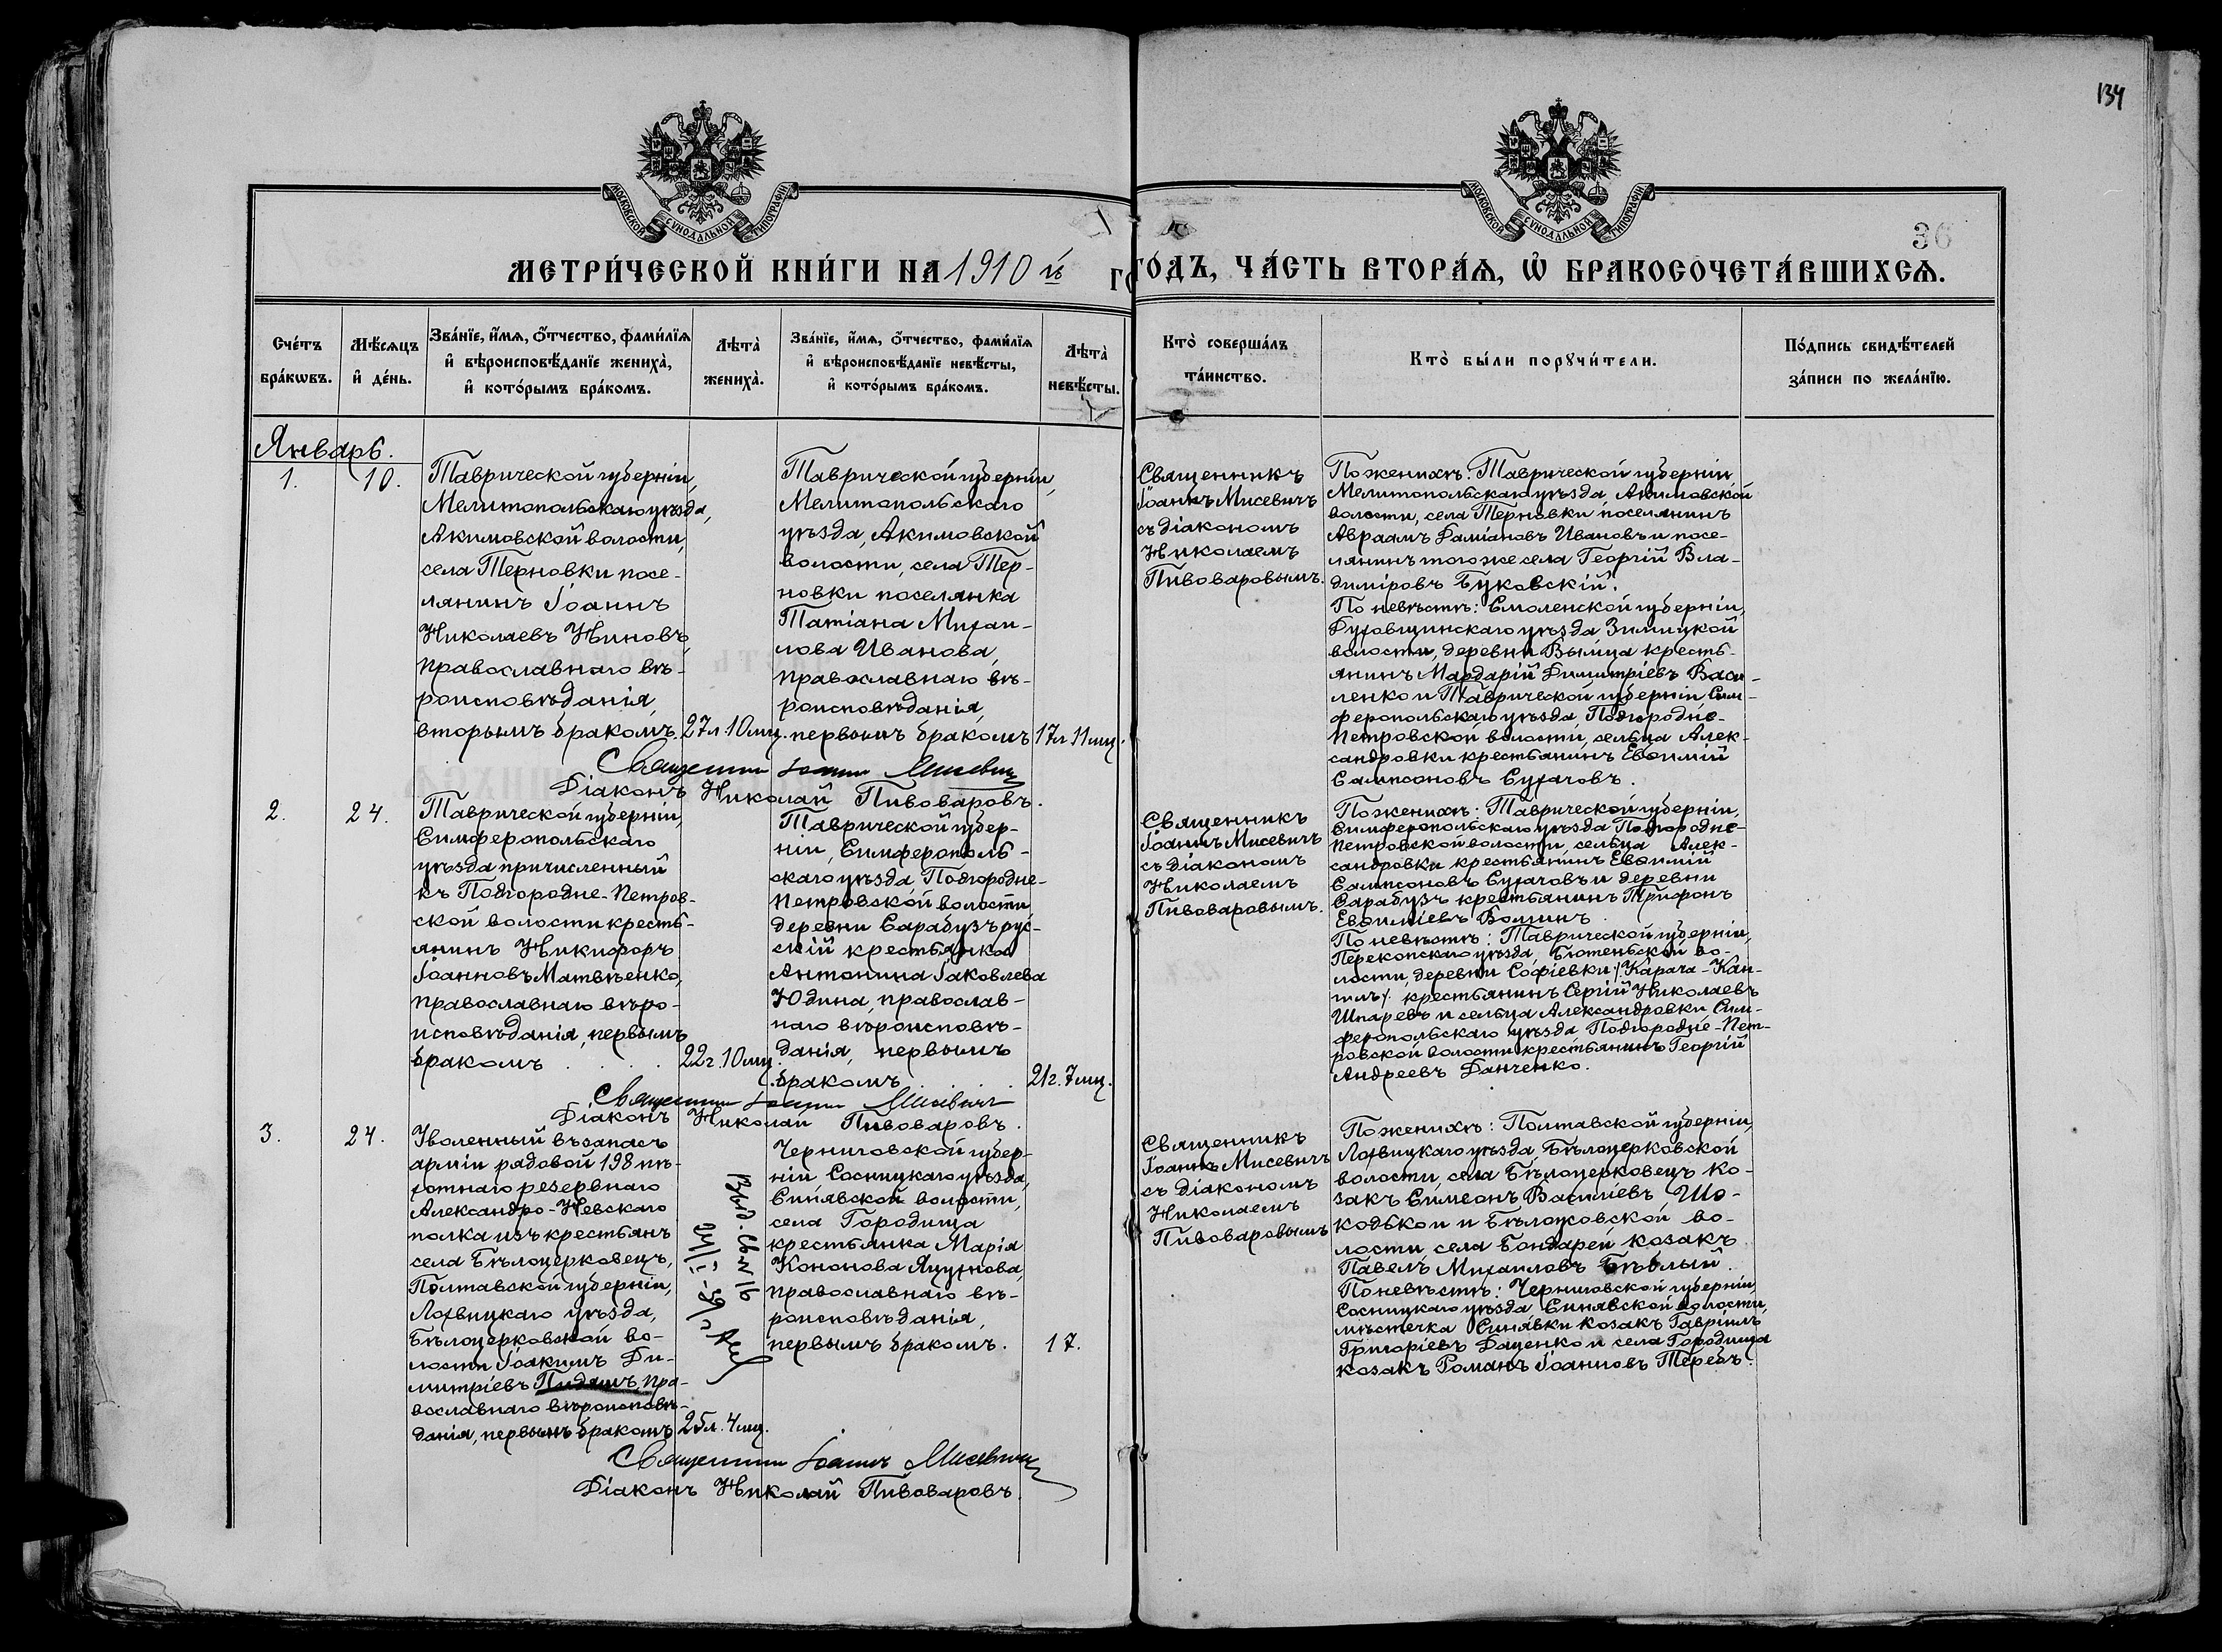 134
МОСКОВСКОЙ СѴНОДАЛЬНОЙ ТИПОГРАФІИ
МОСКОВСКОЙ СѴНОДАЛЬНОЙ ТИПОГРАФІИ
36
МЕТРИ́ЧЕСКОЙ КНИ́ГИ НА 1910 й
ГО́ДЪ, ЧА́СТЬ ВТОРА́Ѧ, Ѡ҆ БРАКОСОЧЕТА́ВШИХСѦ.
Сче́тъ
бра́кѡвъ.
Мѣ́сѧцъ
и҆ де́нь.
Зва́нїе, и҆́мѧ, ѻ҆́тчество, фами́лїѧ
и҆ вѣроисповѣ́данїе жениха̀,
и҆ кото́рымъ бра́комъ.
Лѣта̀
жениха̀.
Зва́нїе, и҆́мѧ, ѻ҆́тчество, фами́лїѧ
и҆ вѣроисповѣ́данїе невѣ́сты,
и҆ кото́рымъ бра́комъ.
Лѣта̀
невѣ́сты.
Кто̀ соверша́лъ
та́инство.
Кто̀ бы́ли порꙋчи́тели.
По́дпись свидѣ́телей
за́писи по жела́нїю.
Январь.
1.
10.
Таврической губерніи,
Мелитопольскаго уѣзда,
Акимовской волости,
села Терновки посе-
лянинъ Іоаннъ
Николаевъ Ниновъ,
православнаго вѣ-
роисповѣданія,
вторымъ бракомъ.
27 л. 10 мц.
Таврической губерніи,
Мелитопольскаго
уѣзда, Акимовской
волости, села Тер-
новки поселянка
Татіана Михаи-
лова Иванова,
православнаго вѣ-
роисповѣданія,
первымъ бракомъ
17 л 11 мц.
Священникъ Іоаннъ Мисевичъ
Діаконъ Николай Пивоваровъ.
Священникъ
Іоаннъ Мисевичъ
съ діакономъ
Николаемъ
Пивоваровымъ.
По женихѣ: Таврической губерніи,
Мелитопольскаго уѣзда, Акимовской
волости, села Терновки поселянинъ
Авраамъ Даміановъ Ивановъ и посе-
лянинъ того же села Георгій Вла-
диміровъ Буковскій.
По невѣстѣ: Смоленской губерніи,
Духовщинскаго уѣзда, Зимицкой
волости, деревни Вымца кресть-
янинъ Мардарій Димитріевъ Васи-
ленко и Таврической губерніи Сим-
феропольскаго уѣзда, Подгородне-
Петровской волости, сельца Алек-
сандровки крестьянинъ Евѳимій
Сампсоновъ Сухачовъ.
2.
24.
Таврической губерніи,
Симферопольскаго
уѣзда причисленный
къ Подгородне-Петров-
ской волости кресть-
янинъ Никифоръ
Іоанновъ Матвѣенко,
православнаго вѣро-
исповѣданія, первымъ
бракомъ
22 г. 10 мц.
Таврической губер-
ніи, Симферополь-
скаго уѣзда, Подгородне-
Петровской волости
деревни Сарабузъ рус-
скій крестьянка
Антонина Іаковлева
Юдина, православ-
наго вѣроисповѣ-
данія, первымъ
бракомъ
21 г. 7 мц.
Священникъ Іоаннъ Мисевичъ
Діаконъ Николай Пивоваровъ.
Священникъ
Іоаннъ Мисевичъ
съ діакономъ
Николаемъ
Пивоваровымъ.
По женихѣ: Таврической губерніи,
Симферопольскаго уѣзда Подгородне-
Петровской волости, сельца Алек-
сандровки крестьянинъ Евѳимій
Сампсоновъ Сухачовъ и деревни
Сарабузъ крестьянинъ Трифонъ
Евѳиміевъ Вомынъ.
По невѣстѣ: Таврической губерніи,
Перекопскаго уѣзда, Бютеньской во-
лости, деревни Софіевки /Карача-Кан-
гилъ/ крестьянинъ Сергій Николаевъ
Шпаревъ и сельца Александровки, Сим-
феропольскаго уѣзда Подгородне-Пет-
ровской волости крестьянинъ Георгій
Андреевъ Данченко.
3.
24.
Уволенный въ запасъ
арміи рядовой 198 пѣ-
хотнаго резервнаго
Александро-Невскаго
полка изъ крестьянъ
села Бѣлоцерковецъ,
Полтавской губерніи,
Лохвицкаго уѣзда,
Бѣлоцерковской во-
лости Іоакимъ Ди-
митріевъ Пидашъ, пра-
вославнаго вѣроисповѣ-
данія, первымъ бракомъ
25 л. 4 мц.
Выд. св. № 16
Черниговской губер-
ніи Сосницкаго уѣзда,
Синявской волости,
села Городища
крестьянка Марія
Кононова Яцухнова,
православнаго вѣ-
роисповѣданія,
первымъ бракомъ.
17.
Священникъ Іоаннъ Мисевичъ
Діаконъ Николай Пивоваровъ
Священникъ
Іоаннъ Мисевичъ
съ діакономъ
Николаемъ
Пивоваровымъ
По женихѣ: Полтавской губерніи,
Лохвицкаго уѣзда, Бѣлоцерковской
волости, села Бѣлоцерковецъ ко-
закъ Симеонъ Василіевъ Шо-
кодько и Бѣлоцковской во-
лости, села Бондарей козакъ
Павелъ Михаиловъ Бѣлый.
По невѣстѣ: Черниговской губерніи,
Сосницкаго уѣзда Синявской волости,
мѣстечка Синявки козакъ Гавріилъ
Григоріевъ Даценко и села Городища
козакъ Романъ Іоанновъ Теребъ.